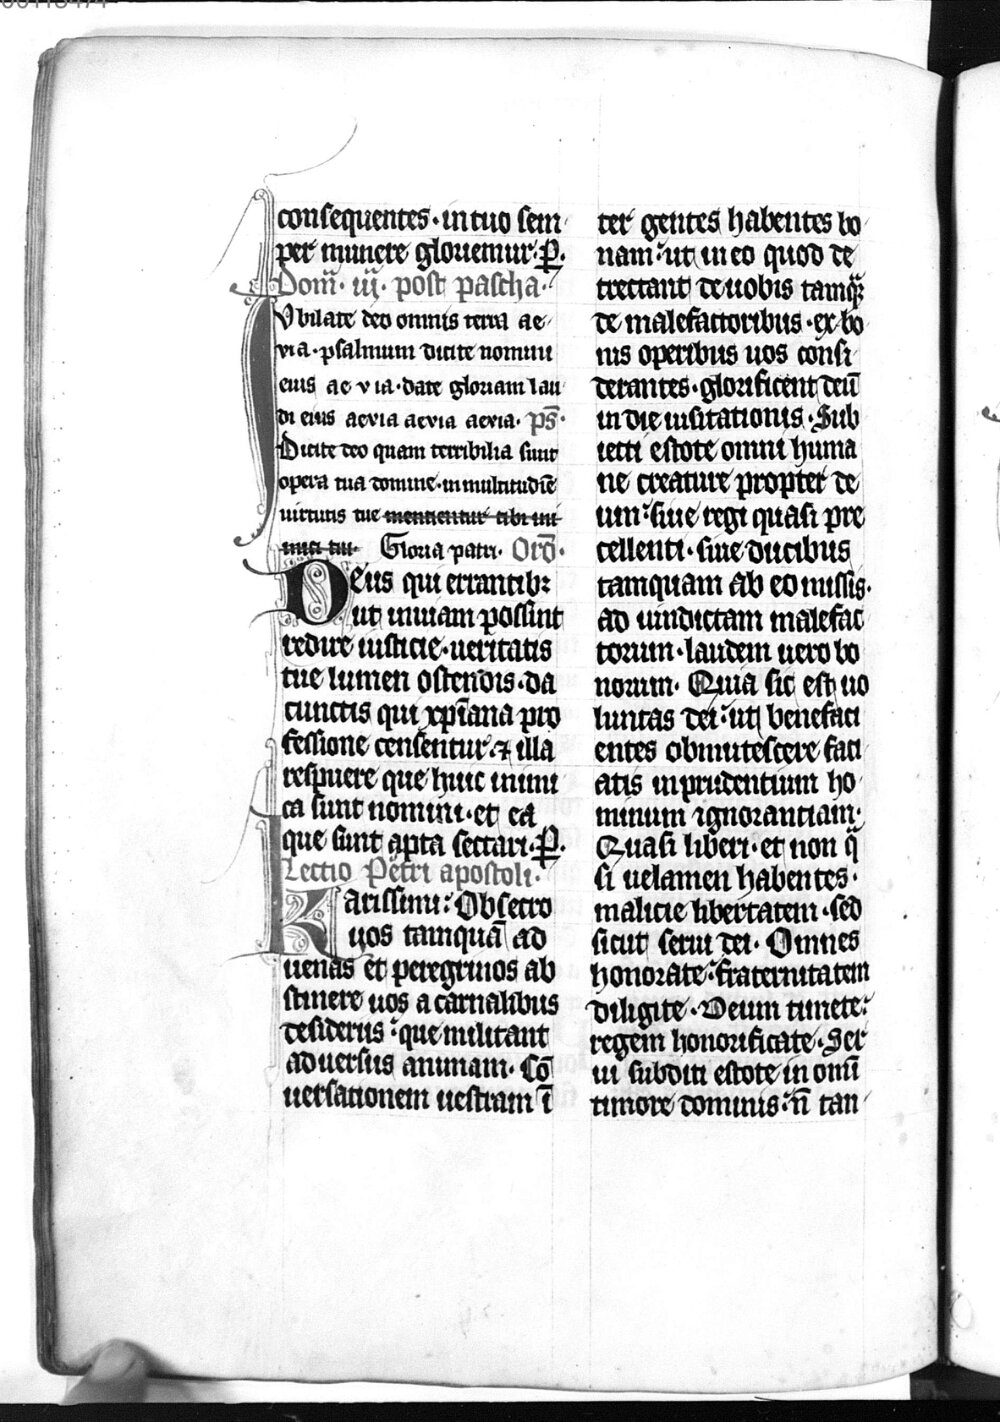 consequentes · in tuo sem
per munere gloriemur · P̲.
Dom̄ · iij · post pascha ·
Iubilate deo omnis terra ae
via · psalmum dicite nomini
eius ae via · date gloriam lau
di eius aevia aevia aevia · ps̄ ·
Dicite deo quam terribilia sunt
opera tua domine · in multitudīe
virtutis tue mencientur tibi ini
mici tui · Gloria patri · Orō ·
Deus qui errantibꝫ
ut in uiam possint
redire iusticie · ueritatis
tue lumen ostendis · da
cunctis qui xp̄iana pro
fessione censentur · ⁊ illa
respuere que huic inimi
ca sunt nomini · et ea
que sunt apta sectari · P̲.
Lectio Petri apostoli ·
Karissimi : Obsecro
uos tamquā ad
uenas et peregrinos ab
stinere uos a carnalibus
desideriis : que militant
aduersus animam · Cō
uersationem uestram ī
ter gentes habentes bo
nam : ut in eo quod de
trectant de uobis tamqꝫ
de malefactoribus · ex bo
nis operibus uos consi
derantes · glorificent deū
in die uisitationis · Sub
iecti estote omni huma
ne creature propter de
um : siue regi quasi pre
cellenti · siue ducibus
tamquam ab eo missis ·
ad uindictam malefac
torum · laudem uero bo
norum · Quia sic est uo
luntas dei : ut benefaci
entes obmutescere faci
atis inprudentium ho
minum ignorantiam ·
Quasi liberi · et non q̄
si uelamen habentes ·
malicie libertatem · sed
sicut serui dei · Omnes
honorate : fraternitatem
diligite · Deum timete :
regem honorificate · Ser
ui subditi estote in omī
timore dominis : n̄ tan